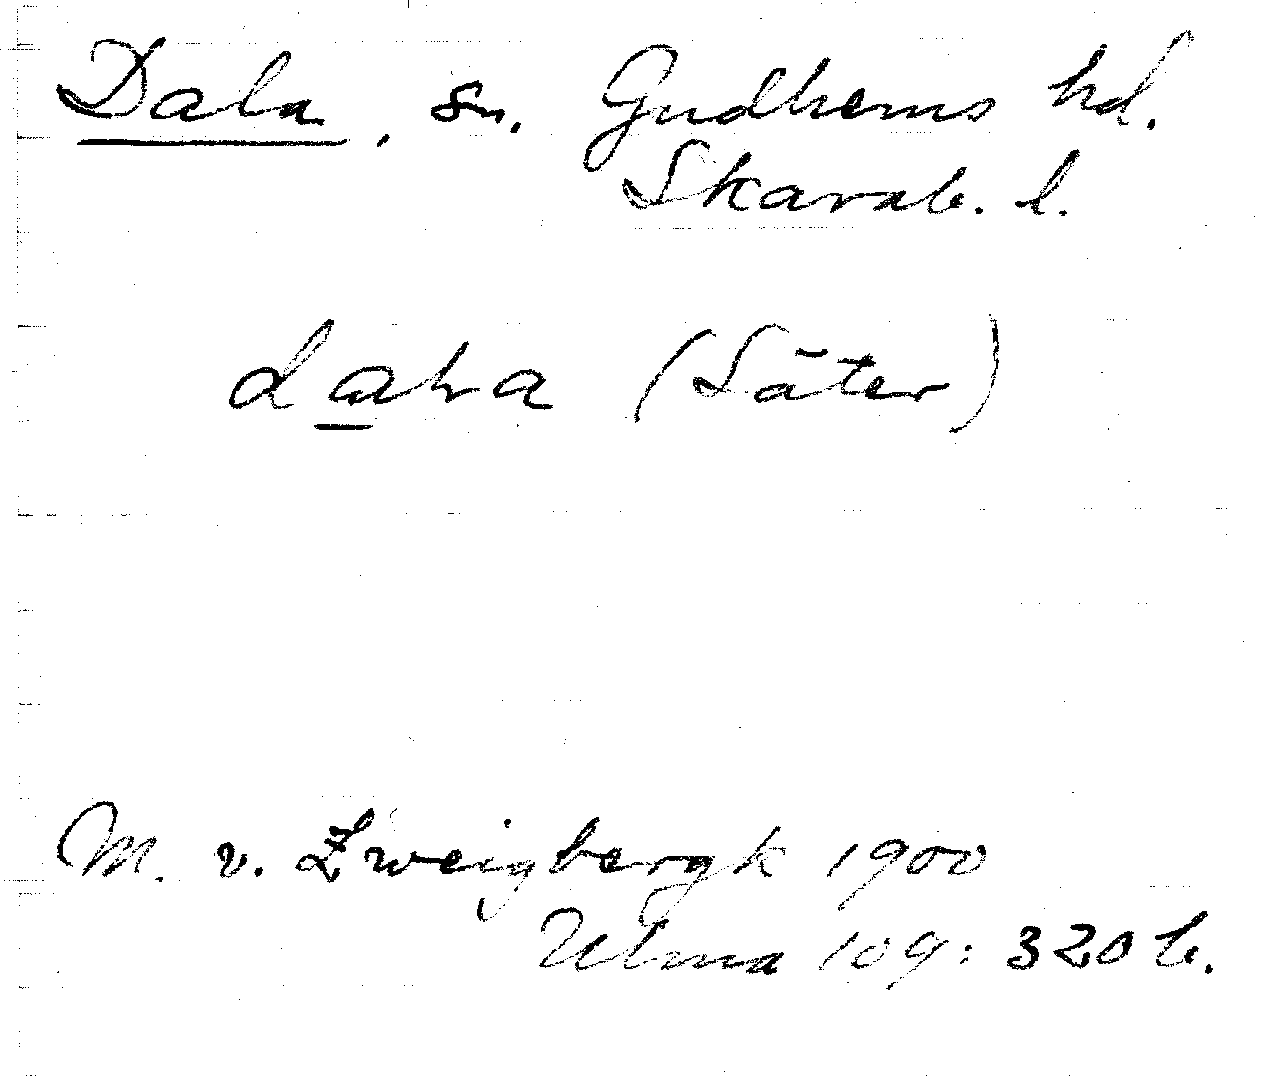 Dala, sn. Gudhems hd.
Skarab. l.
(Säter)
M. v. Zweigbergk 1900
Ulma 109: 320 b.